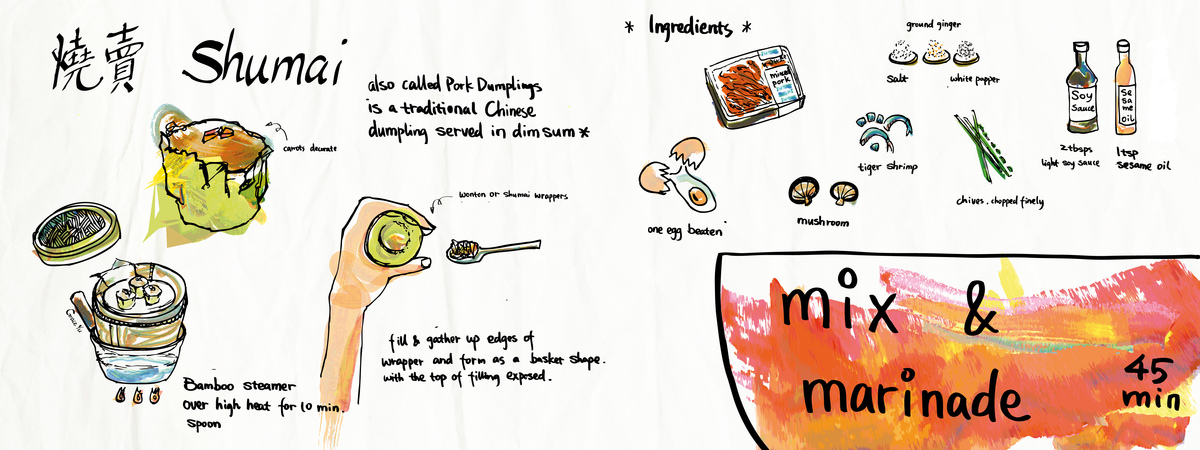 燒賣 Shumai
also called Pork Dumplings
is a traditional Chinese
dumpling served in dim sum *
carrots decorate
wonton or shumai wrappers
fill & gather up edges of
wrapper and form as a basket shape.
with the top of filling exposed.
Bamboo steamer
over high heat for 10 min.
spoon
* Ingredients *
mixed
pork
ground ginger
salt
white papper
Soy
Sauce
Se
sa
me
oil
2tbsps
light soy sauce
1tsp
sesame oil
tiger shrimp
chives, chopped finely
mushroom
one egg beaten
mix &
marinade
45
min